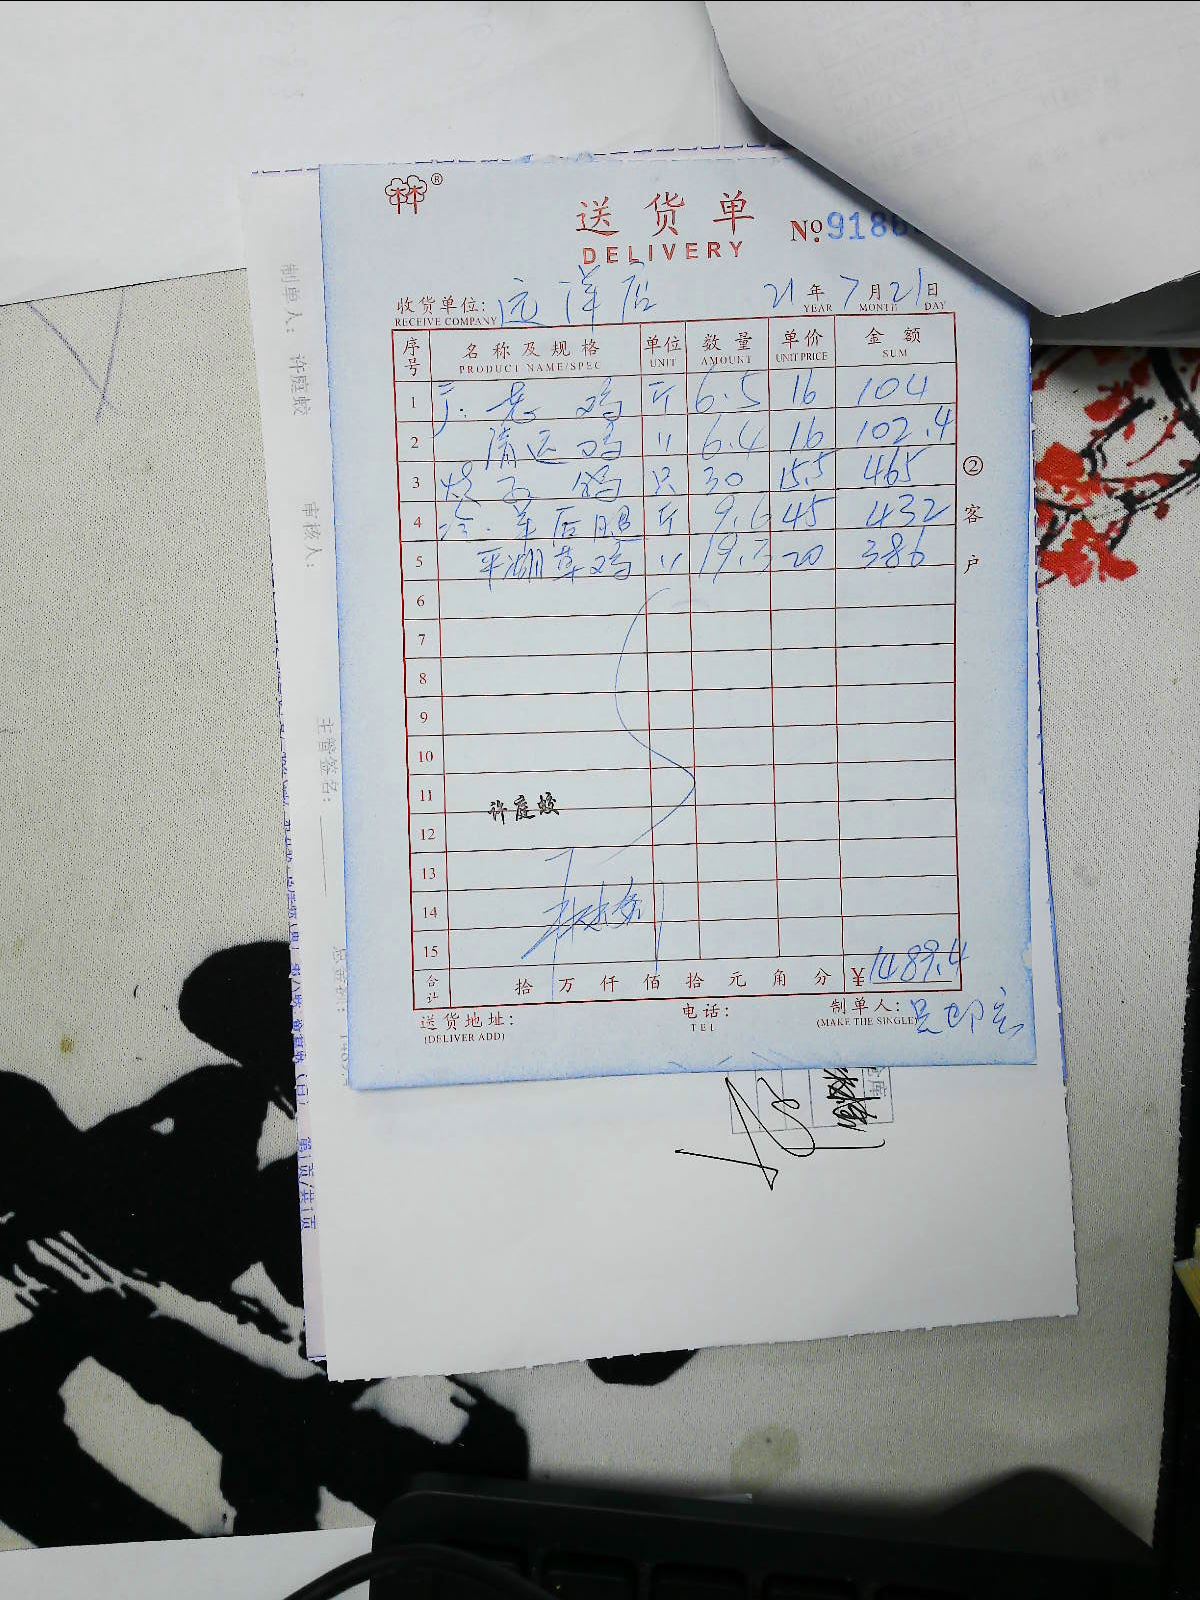 林林®
送货单
DELIVERY
№ 9186
收货单位: 远洋店 21年7月21日
RECEIVE COMPANY YEAR MONTH DAY
序号 名称及规格 单位 数量 单价 金额
PRODUCT NAME/SPEC UNIT AMOUNT UNIT PRICE SUM
1 广.老鸡 斤 6.5 16 104
2 清远鸡 〃 6.4 16 102.4
3 只 30 15.5 465
4 冷.羊后腿 斤 9.6 45 432
5 平湖草鸡 〃 19.3 20 386
6
7
8
9
10
11
12
13
14
15
许庭蛟
合计 拾 万 仟 佰 拾 元 角 分 ¥1489.4
送货地址: 电话: 制单人:
(DELIVER ADD) TEL (MAKE THE SINGLE)
②客户
制单人: 许庭蛟
审核人:
主管签名:
第1页/共1页